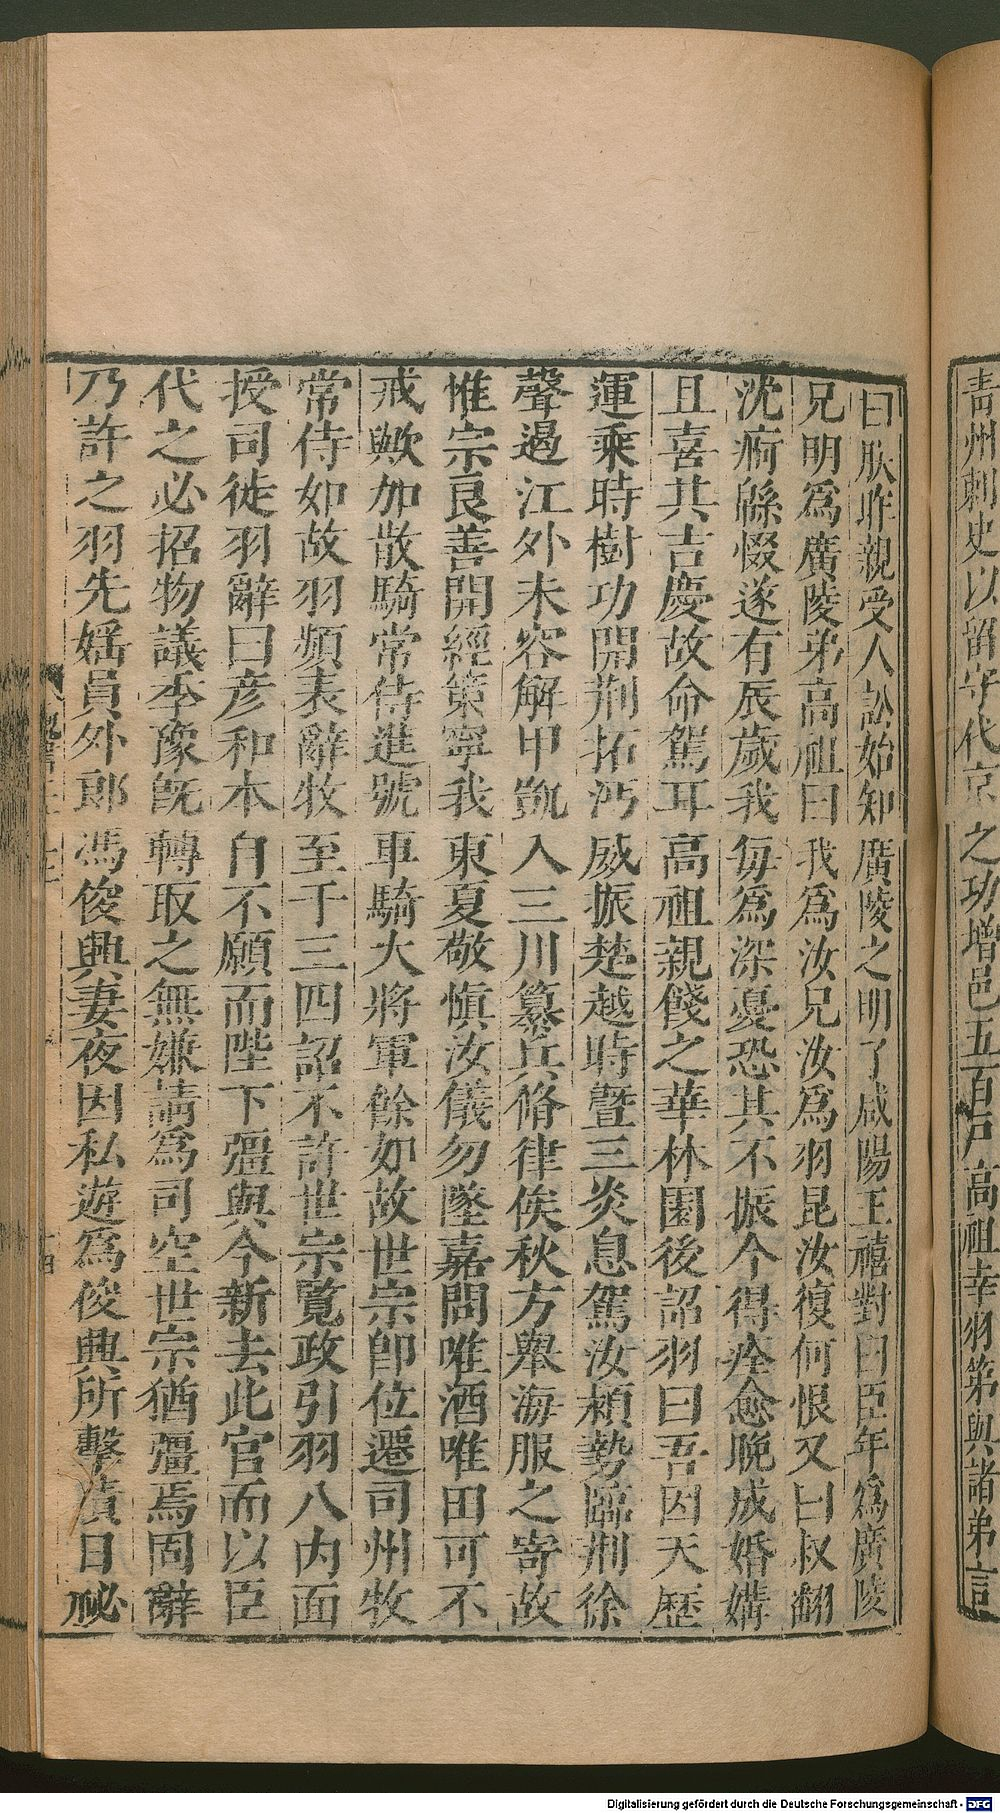 青州刺史以留守代京之功增邑五百戶高祖幸羽第與諸弟言
曰朕昨親受人訟始知廣陵之明了咸陽王禧對曰臣年爲廣陵
兄明爲廣陵弟高祖曰我爲汝兄汝爲羽昆汝復何恨又曰叔翻
沈痾緜惙遂有辰歲我每爲深憂恐其不振今得痊愈晚成婚媾
且喜其吉慶故命駕耳高祖親餞之華林園後詔羽曰吾因天歷
運乘時樹功開荆拓沔威振楚越時曁三炎息駕汝潁勢臨荆徐
聲遏江外未容解甲凱入三川纂兵脩律俟秋方舉海服之寄故
惟宗良善開經策寧我東夏敬愼汝儀勿墜嘉問唯酒唯田可不
戒歟加散騎常侍進號車騎大將軍餘如故世宗卽位遷司州牧
常侍如故羽頻表辭牧至于三四詔不許世宗覽政引羽入內面
授司徒羽辭曰彦和本自不願而陛下彊與今新去此官而以臣
代之必招物議季豫旣轉取之無嫌請爲司空世宗猶彊焉固辭
乃許之羽先婬員外郎馮俊興妻夜因私遊爲俊興所擊積日祕